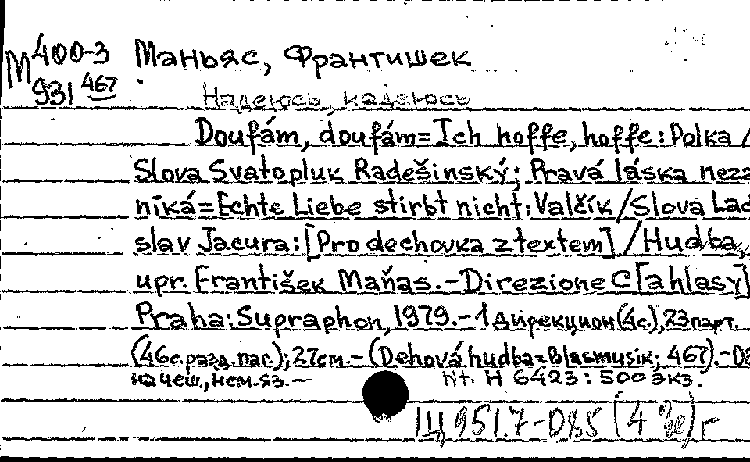 М 400-3 Маньяс, Франтишек
931 467
Надеюсь, надеюсь
Doufám, doufám=Ich hoffe, hoffe: Polka /
Slova Svatopluk Radešinský; Pravá láska neza
niká=Echte Liebe stirbt nicht: Valčík/Slova Lad
slav Jacura: [Pro dechovka z textem] / Hudba,
upr. František Maňas.-Direzione C[a hlasy]
Praha: Supraphon, 1979.-1 дирекцион (4с.), 23 парт.
(46с. разд. паг.); 27см.-(Dehová hudba=Blasmusik; 467).-
на чеш., нем. яз.- Nt. H 6423: 500 экз.